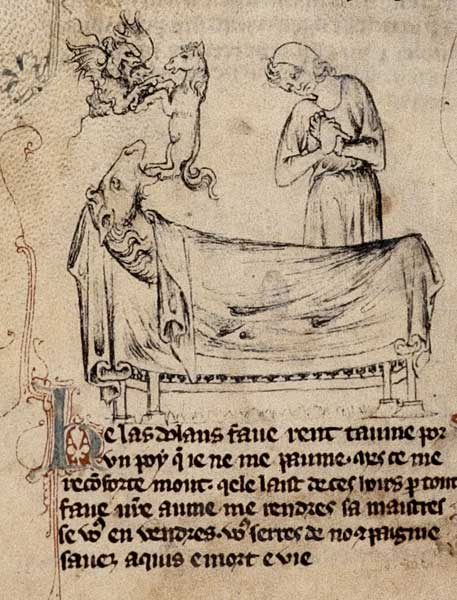 He las dolans fauve rent taume por
un poy q̃ ie ne me paume. mes ce me
recõforte mont. qele laist de ces hoirs ꝑ tout
fauve ur̃e aume me rendres sa maistres
se vꝰ en vendres. vꝰ serres de no ꝯpaignie
sauez aquis e mort e vie